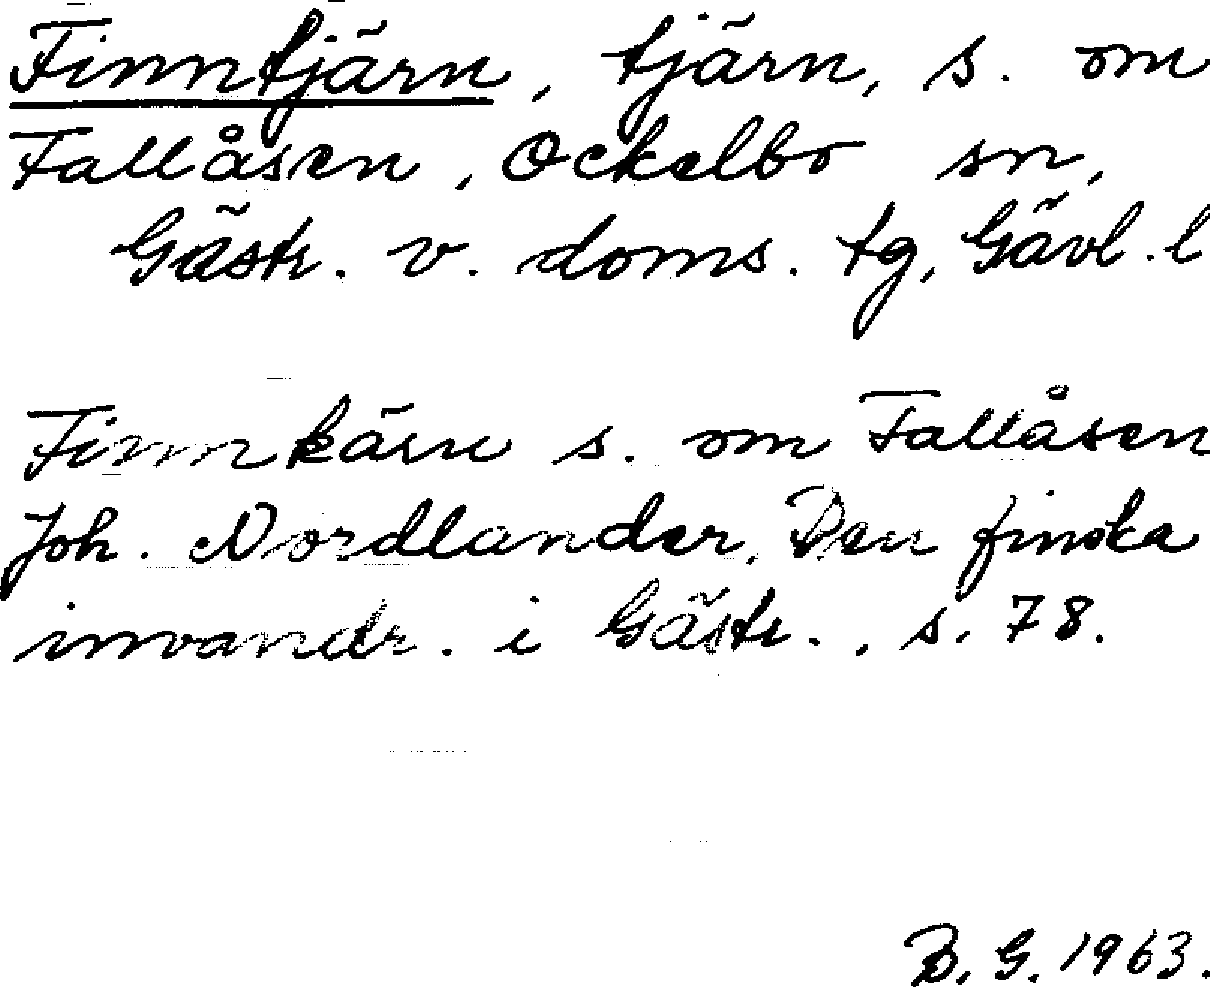 Finntjärn, tjärn, s. om
Fallåsen, Ockelbo sn,
Gästr. v. doms. tg, Gävl. l
Finnkärn s. om Fallåsen
Joh. Nordlander, Den finska
invandr. i Gästr., s. 78.
B. G. 1963.